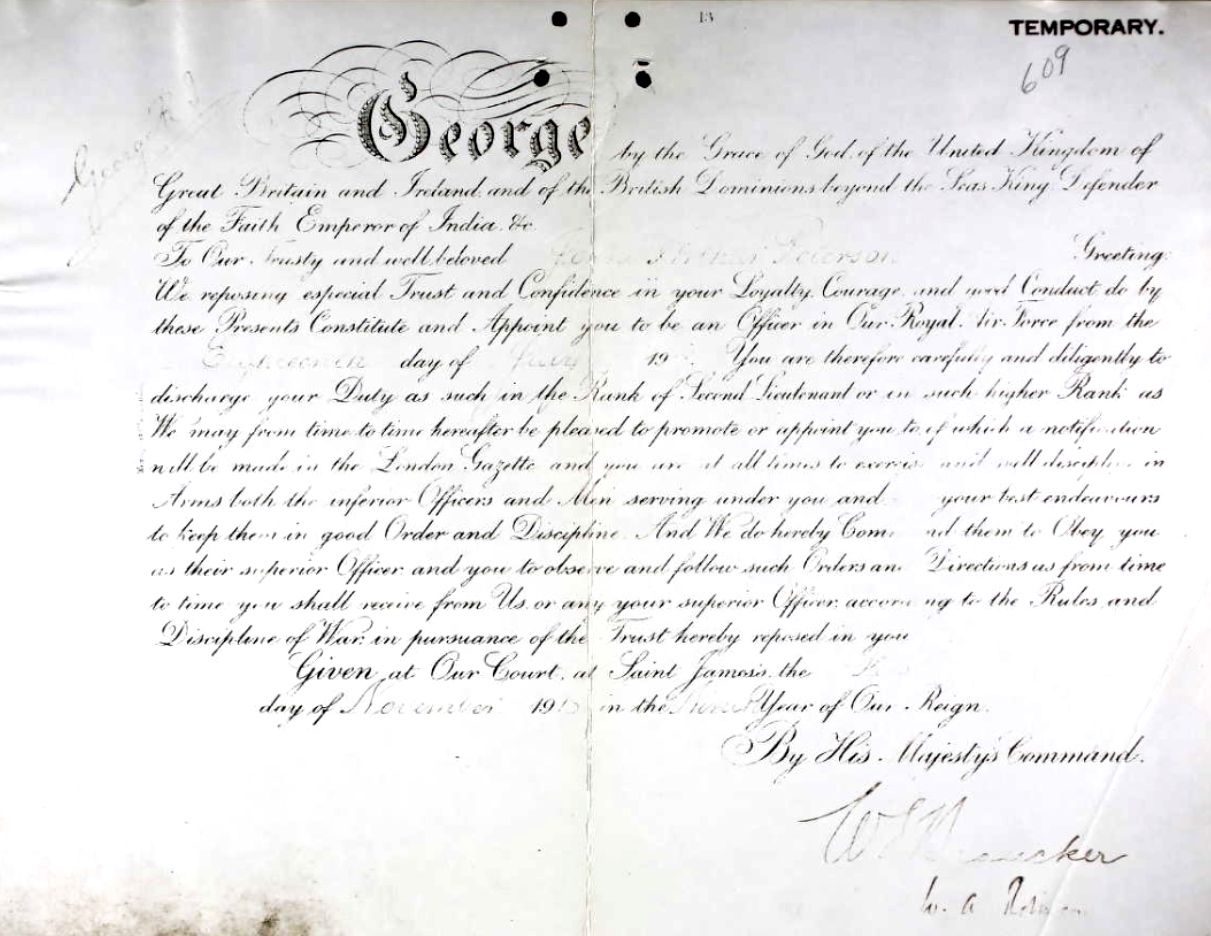 13
TEMPORARY.
609
George R I
George
by the Grace of God, of the United Kingdom of
Great Britain and Ireland, and of the British Dominions beyond the Seas King, Defender
of the Faith Emperor of India, &c
To Our Trusty and well beloved Arthur Peterson Greeting:
We reposing especial Trust and Confidence in your Loyalty, Courage, and good Conduct, do by
these Presents Constitute and Appoint you to be an Officer in Our Royal Air Force from the
Eighteenth day of 19 . You are therefore carefully and diligently to
discharge your Duty as such in the Rank of Second Lieutenant or in such higher Rank as
We may from time to time hereafter be pleased to promote or appoint you to, of which a notification
will be made in the London Gazette and you are at all times to exercise and well discipline in
Arms both the inferior Officers and Men serving under you and your best endeavours
to keep them in good Order and Discipline. And We do hereby Command them to Obey you
as their superior Officer, and you to observe and follow such Orders and Directions as from time
to time you shall receive from Us, or any your superior Officer, according to the Rules and
Discipline of War, in pursuance of the Trust hereby reposed in you
Given, at Our Court, at Saint James's, the
day of November 191 in the Ninth Year of Our Reign.
By His Majesty's Command.
W. A. Robinson